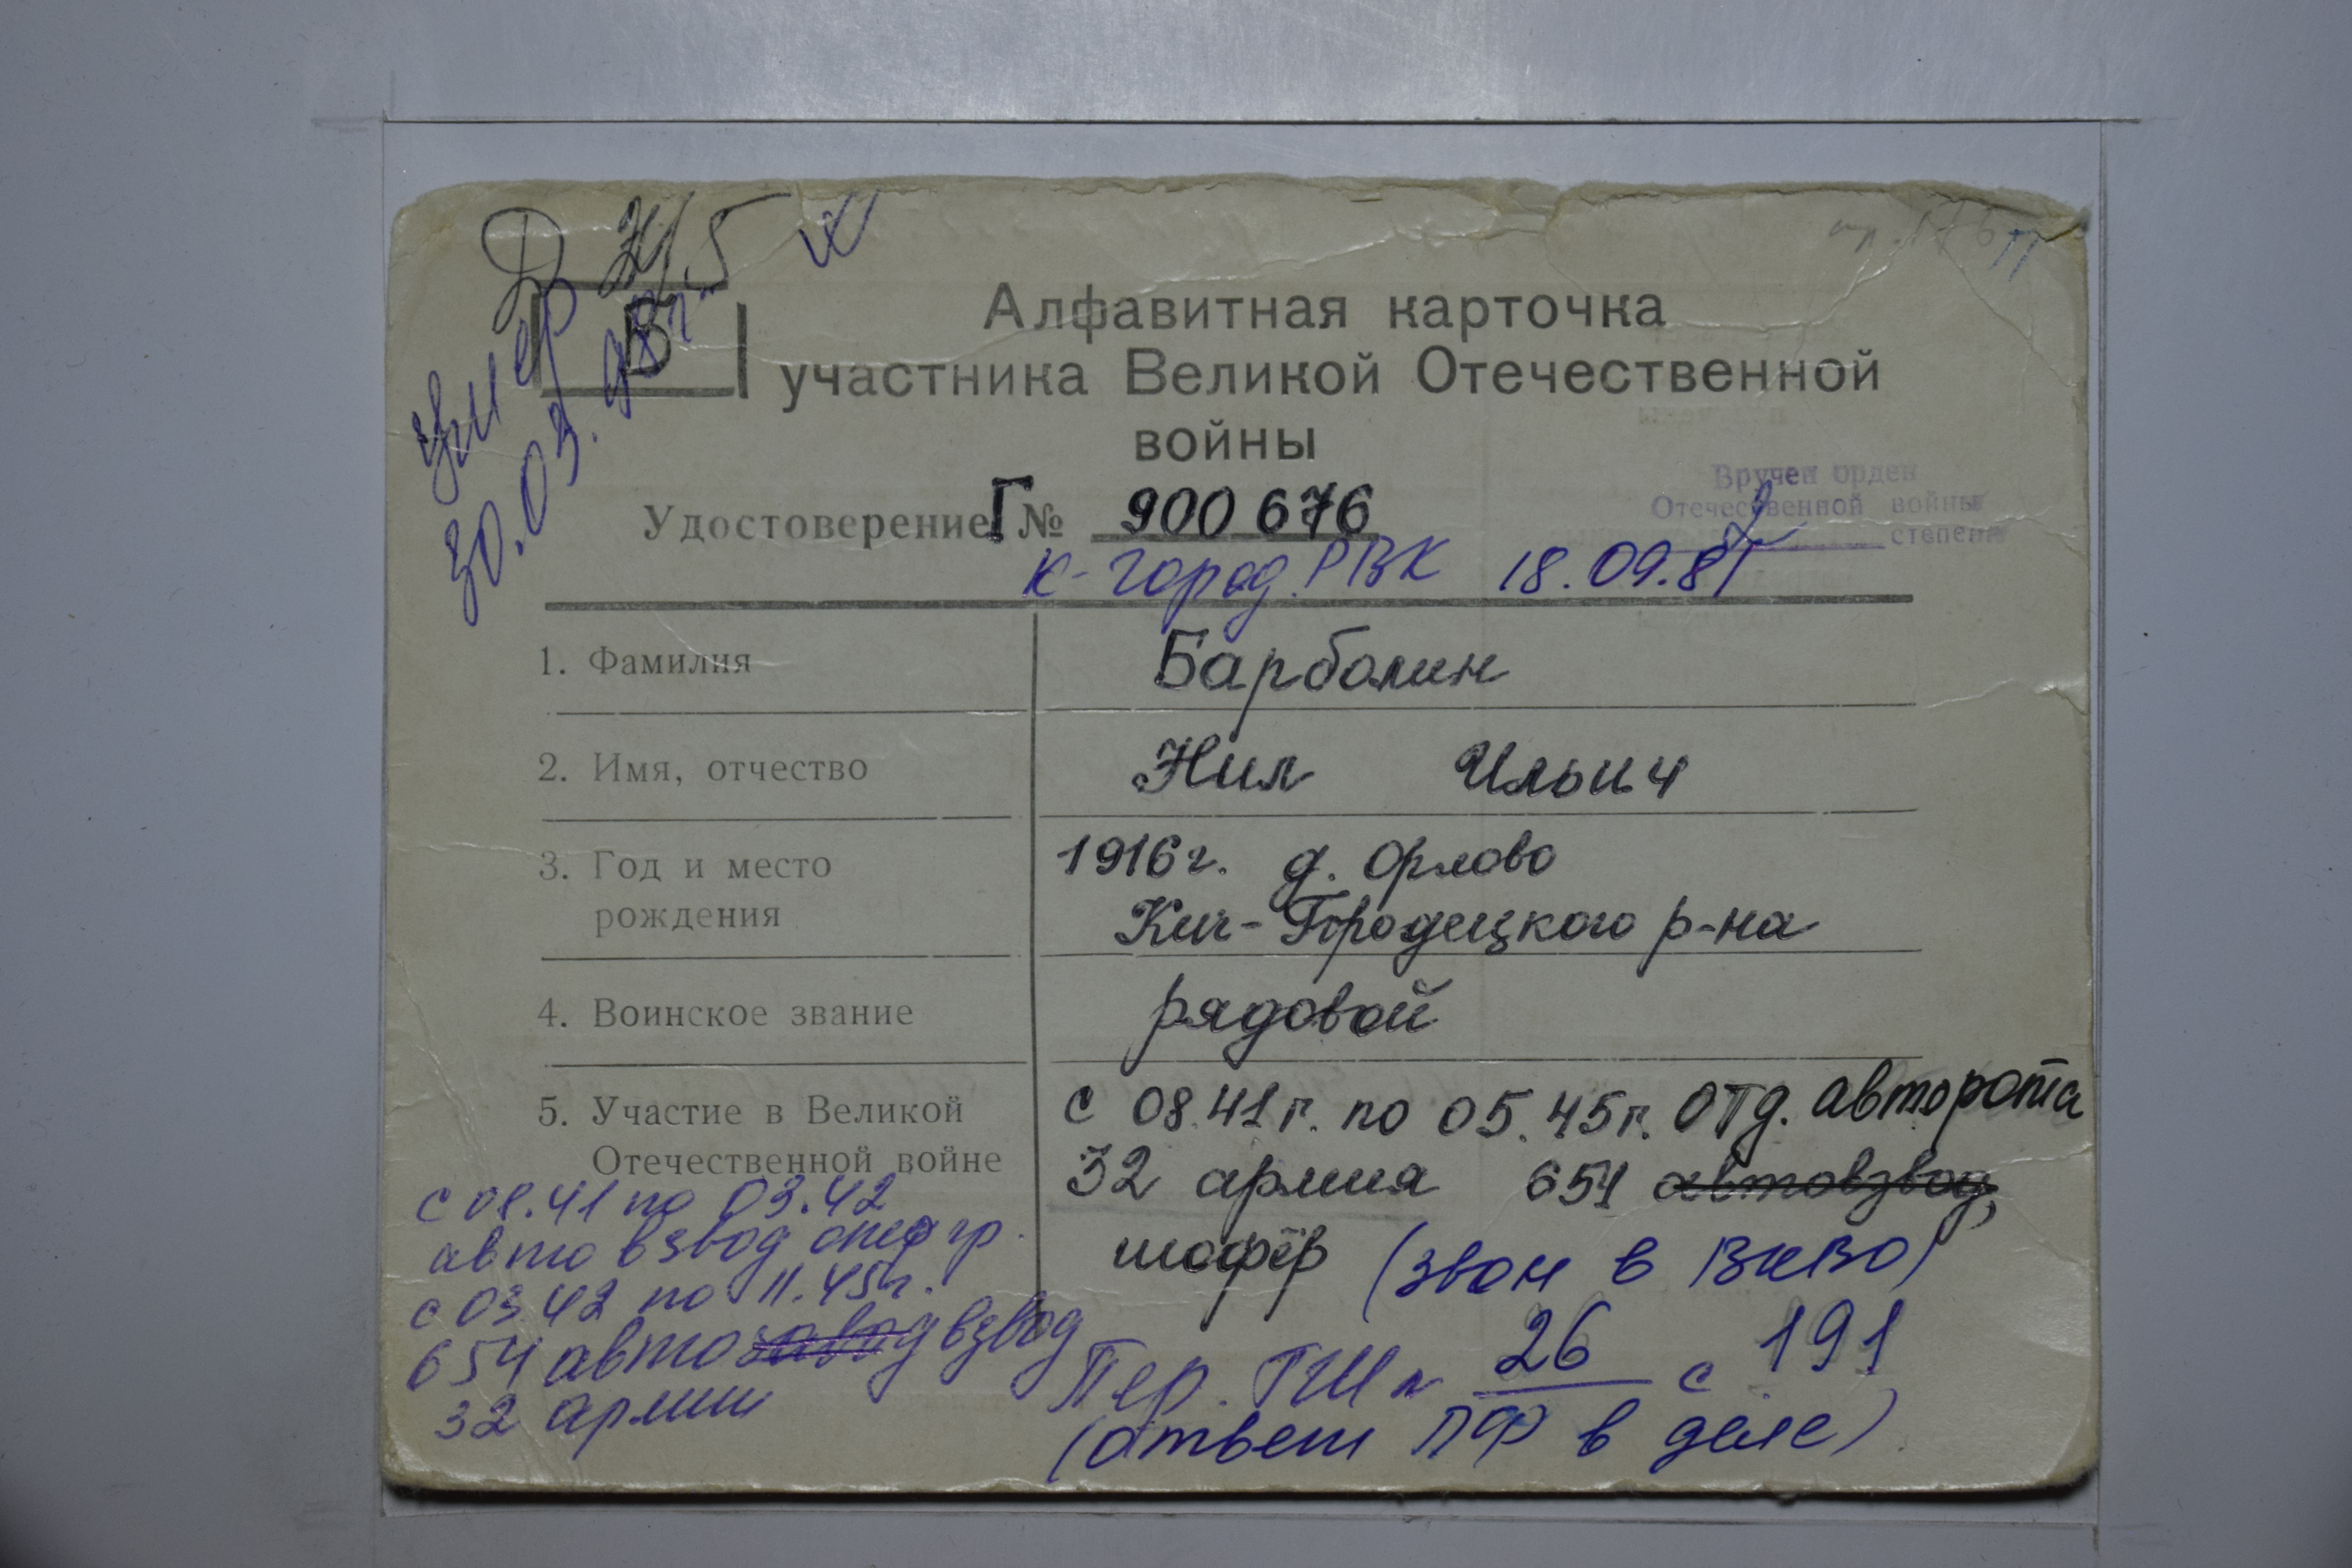 Б
умер
30.03.
Алфавитная карточка
участника Великой Отечественной
войны
Вручен орден
Отечественной войны
2 степени
Удостоверение Г № 900 676
К-Город. РВК 18.09.81
1. Фамилия Барболин
2. Имя, отчество Нил Ильич
3. Год и место рождения 1916 г. д. Орлово
Кич-Городецкого р-на
4. Воинское звание рядовой
5. Участие в Великой
Отечественной войне
с 08.41 г. по 05.45 г. отд. авторота
32 армия 654 автовзвод,
шофёр (звон в ВКВО)
с 08.41 по 03.42
авто взвод опер гр.
с 03.42 по 11.45 г.
654 автозавод взвод
32 армии
Пер. ГШ 26 с 191
(ответ ПФ в деле)